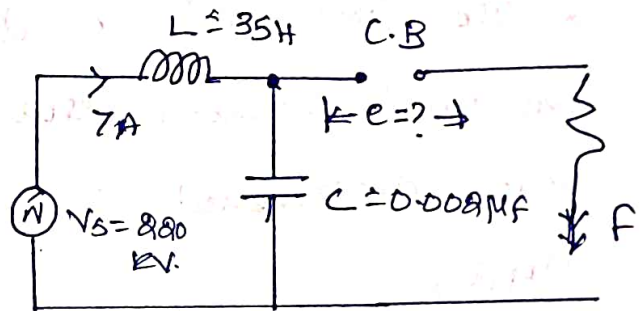 L ≐ 35H
C.B
7A
e=?
C ≐ 0.002μF
F
N
Vs = 220
kV.